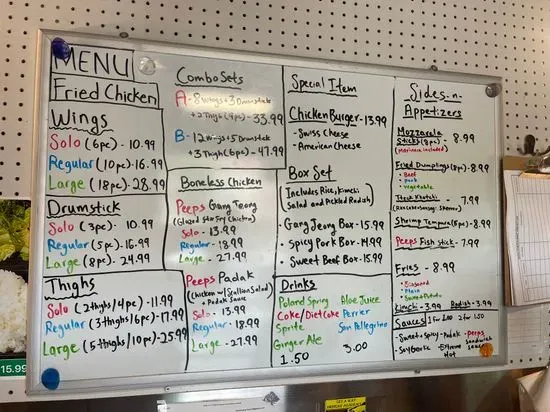 MENU
Fried Chicken
Wings
Solo (6pc) - 10.99
Regular (10pc) - 16.99
Large (18pc) - 28.99
Drumstick
Solo (3pc) - 10.99
Regular (5pc) - 16.99
Large (8pc) - 24.99
Thighs
Solo (2thighs/4pc) - 11.99
Regular (3thighs/6pc) - 17.99
Large (5thighs/10pc) - 25.99
Combo Sets
A - 8 Wings + 3 Drumstick
+ 2 Thigh (4pc) - 33.99
B - 12 Wings + 5 Drumstick
+ 3 Thigh (6pc) - 47.99
Boneless Chicken
Peeps Gang Jeong
(Glazed Stir Fry Chicken)
Solo - 13.99
Regular - 18.99
Large - 27.99
Peeps Padak
(Chicken w/ Scallion Salad)
+ Padak Sauce
Solo - 13.99
Regular - 18.99
Large - 27.99
Special Item
Chicken Burger - 13.99
- Swiss Cheese
- American Cheese
Box Set
(Includes Rice, Kimchi,
Salad and Pickled Radish)
- Gang Jeong Box - 15.99
- Spicy Pork Box - 14.99
- Sweet Beef Box - 15.99
Drinks
Poland Spring
Coke/Diet Coke
Sprite
Ginger Ale
1.50
Aloe Juice
Perrier
San Pellegrino
3.00
Sides-n-
Appetizers
Mozzarela
Sticks (8pc) - 8.99
(marinara included)
Fried Dumplings (8pc) - 8.99
• Beef
• Pork
• vegetable
- 7.99
Shrimp Tempura (5pc) - 8.99
Peeps Fish stick - 7.99
Fries - 8.99
• Seasoned
• Plain
• Sweet Potato
Kimchi - 3.99 Radish - 3.99
Sauces 1 for 1.00 2 for 1.50
- Sweet + Spicy - Padak - peeps
- Soy Garlic - Extreme Hot
15.99